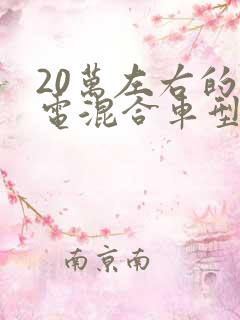 20萬左右的
電混合車型
南京南